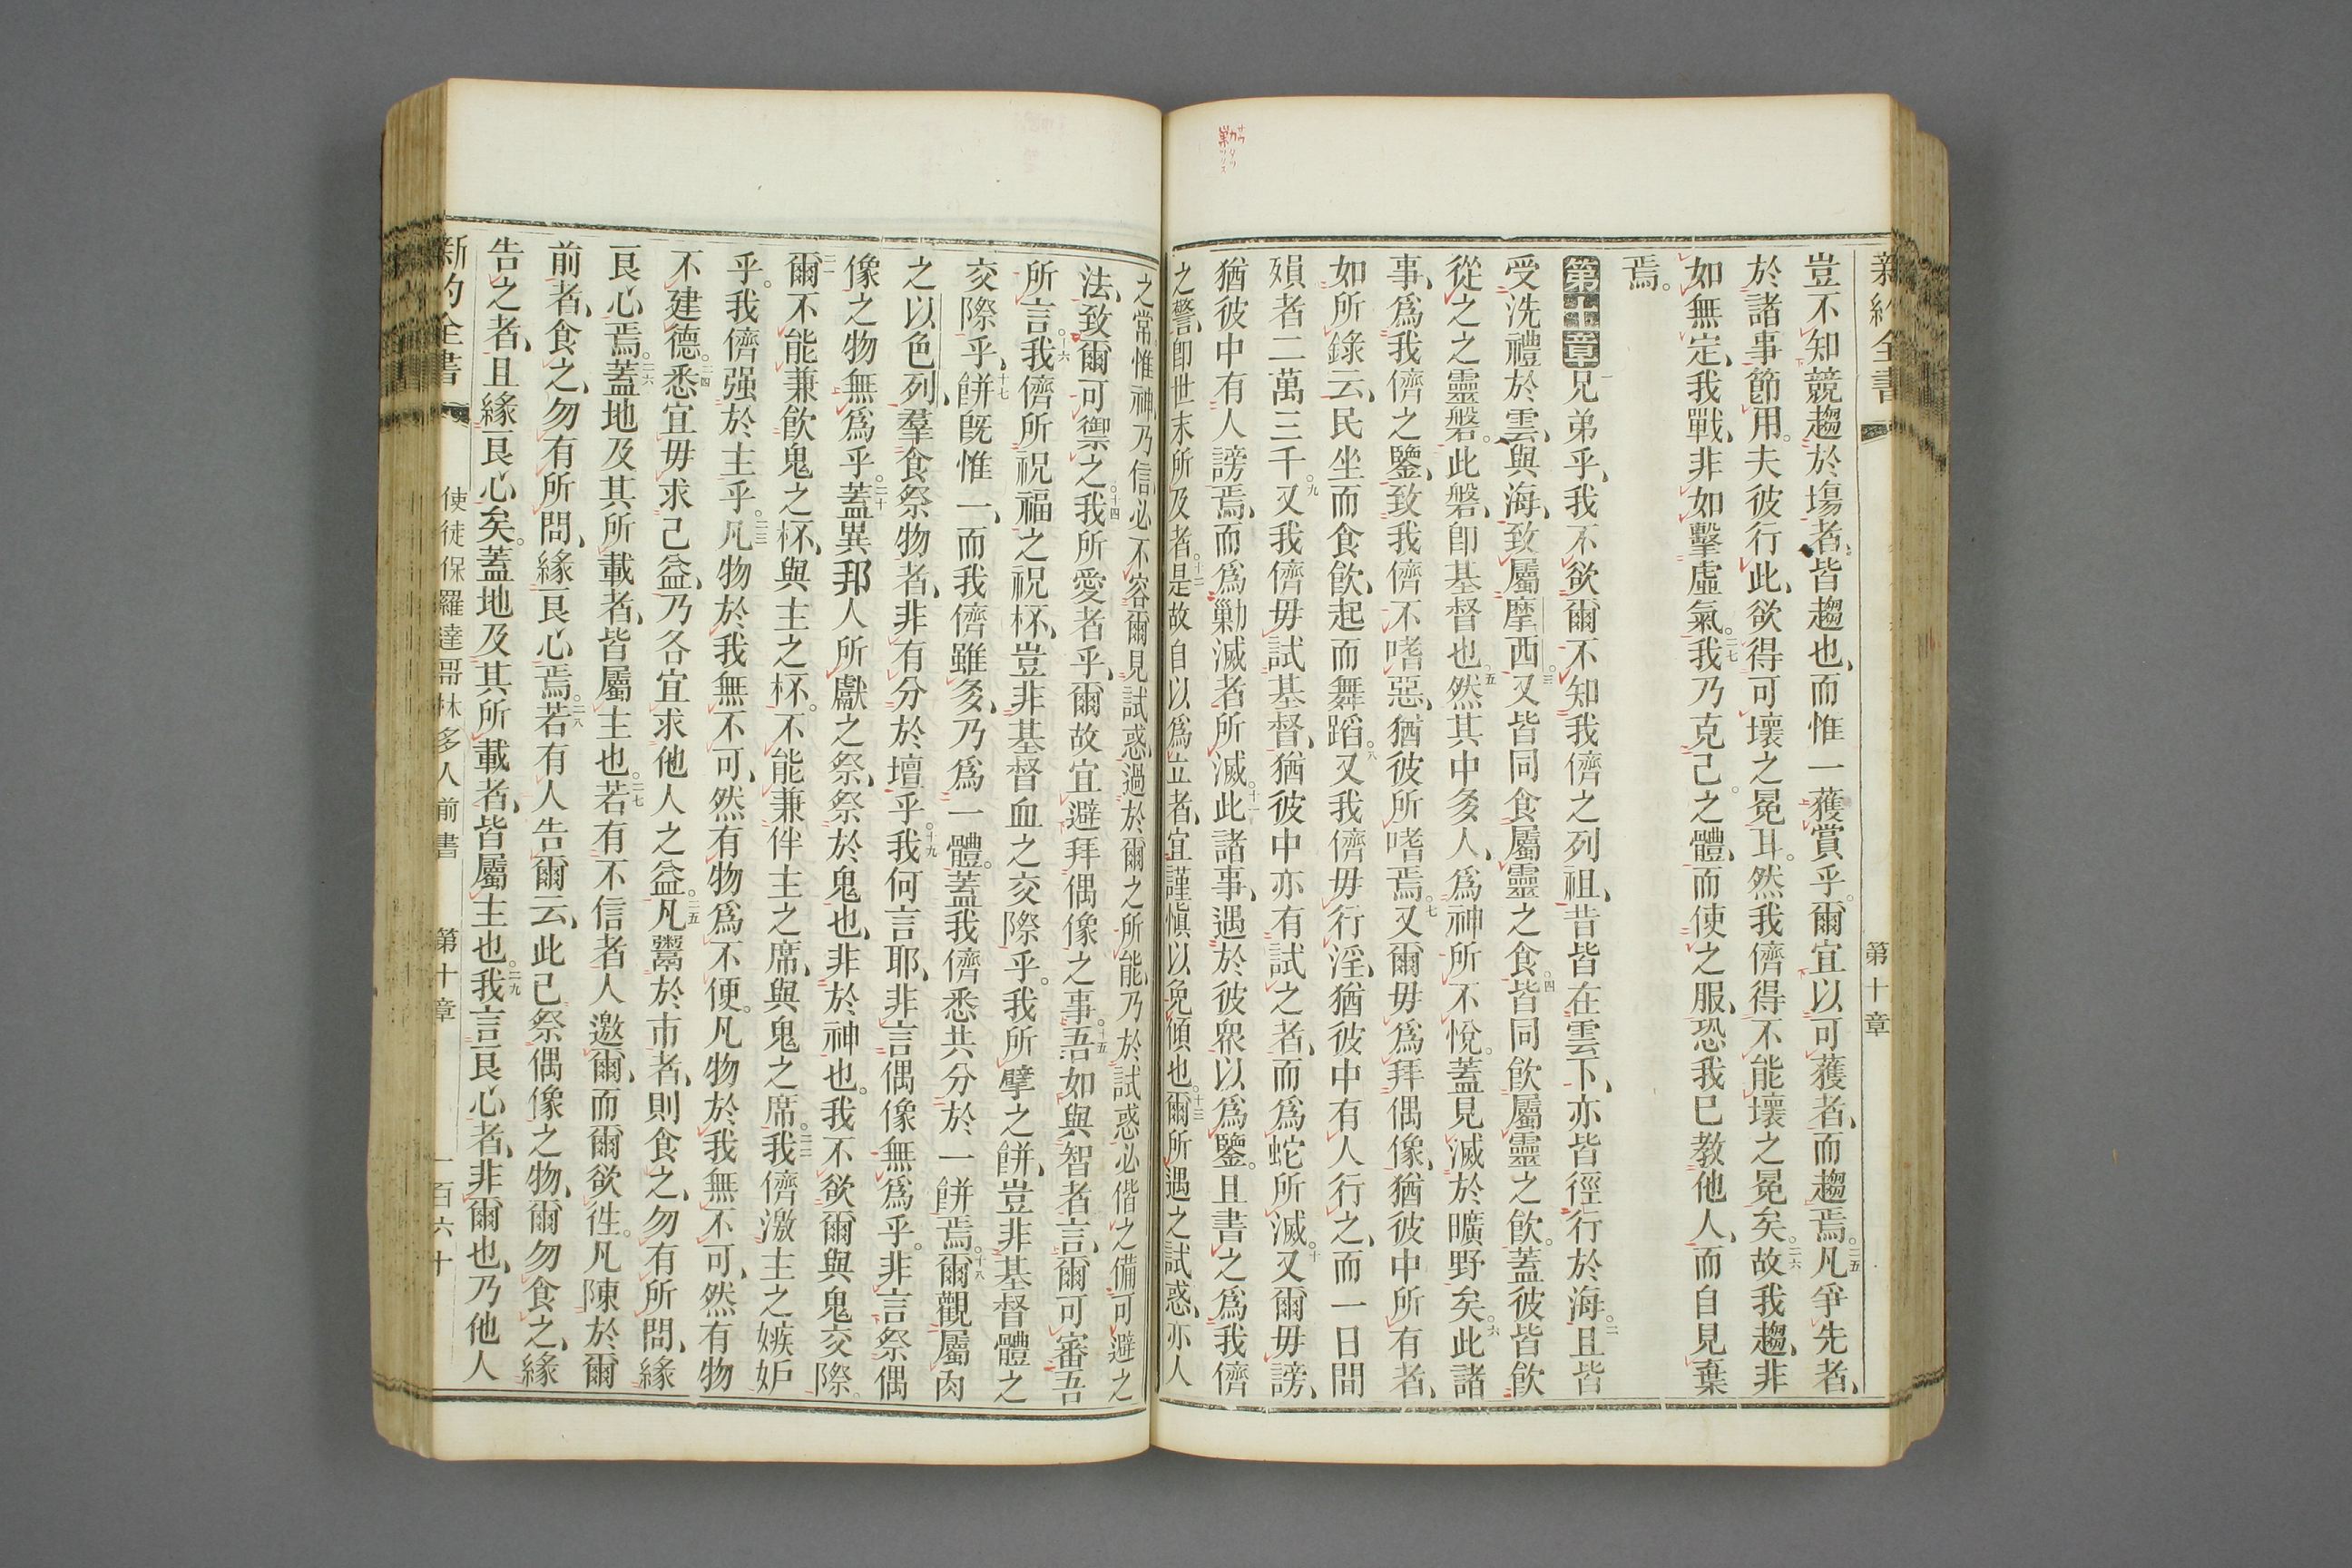 新約全書
第十章
豈不知競趨於塲者、皆趨也、而惟一獲賞乎。爾宜以可獲者、而趨焉。二五凡爭先者、
於諸事節用。夫彼行此、欲得可壞之冕耳。然我儕得不能壞之冕矣。二六故我趨、非
如無定、我戰、非如擊虛氣。二七我乃克己之體、而使之服、恐我已教他人、而自見棄
焉。
第十章一兄弟乎、我不欲爾不知我儕之列祖、昔皆在雲下、亦皆徑行於海。二且皆
受洗禮於雲、與海、致屬摩西。三又皆同食屬靈之食。四皆同飲屬靈之飲。蓋彼皆飲
從之之靈磐。此磐、卽基督也。五然其中多人、爲神所不悅。蓋見滅於曠野矣。六此諸
事、爲我儕之鑒、致我儕不嗜惡、猶彼所嗜焉。七又爾毋爲拜偶像、猶彼中所有者、
如所錄云、民坐而食飲、起而舞蹈。八又我儕毋行淫、猶彼中有人行之、而一日間
殞者二萬三千。九又我儕毋試基督、猶彼中亦有試之者、而爲蛇所滅。十又爾毋謗、
猶彼中有人謗焉、而爲勦滅者所滅。十一此諸事、遇於彼衆以爲鑒。且書之爲我儕
之警、卽世末所及者。十二是故自以爲立者、宜謹愼以免傾也。十三爾所遇之試惑、亦人
之常、惟神乃信、必不容爾見試惑、過於爾之所能、乃於試惑必偕之備可避之
法、致爾可禦之。十四我所愛者乎、爾故宜避拜偶像之事。十五吾如與智者言、爾可審吾
所言。十六我儕所祝福之祝杯、豈非基督血之交際乎。我所擘之餅、豈非基督體之
交際乎、十七餅旣惟一、而我儕雖多、乃爲一體。蓋我儕悉共分於一餅焉。十八爾觀屬肉
之以色列、羣食祭物者、非有分於壇乎。十九我何言耶、非言偶像無爲乎。非言祭偶
像之物無爲乎。二十蓋異邦人所獻之祭、祭於鬼也、非於神也。我不欲爾與鬼交際。
二一爾不能兼飲鬼之杯、與主之杯。不能兼伴主之席、與鬼之席。二二我儕激主之嫉妒
乎。我儕强於主乎。二三凡物於我無不可、然有物爲不便。凡物於我無不可、然有物
不建德。二四悉宜毋求己益、乃各宜求他人之益。二五凡鬻於市者、則食之、勿有所問、緣
良心焉。二六蓋地及其所載者、皆屬主也。二七若有不信者人邀爾、而爾欲徃。凡陳於爾
前者、食之、勿有所問、緣良心焉。二八若有人告爾云、此已祭偶像之物、爾勿食之、緣
告之者、且緣良心矣。蓋地及其所載者、皆屬主也。二九我言良心者、非爾也、乃他人
新約全書
使徒保羅達哥林多人前書
第十章
一百六十